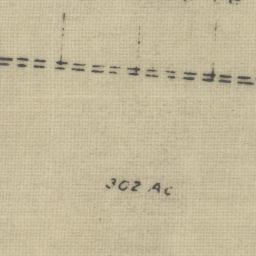 302 Ac